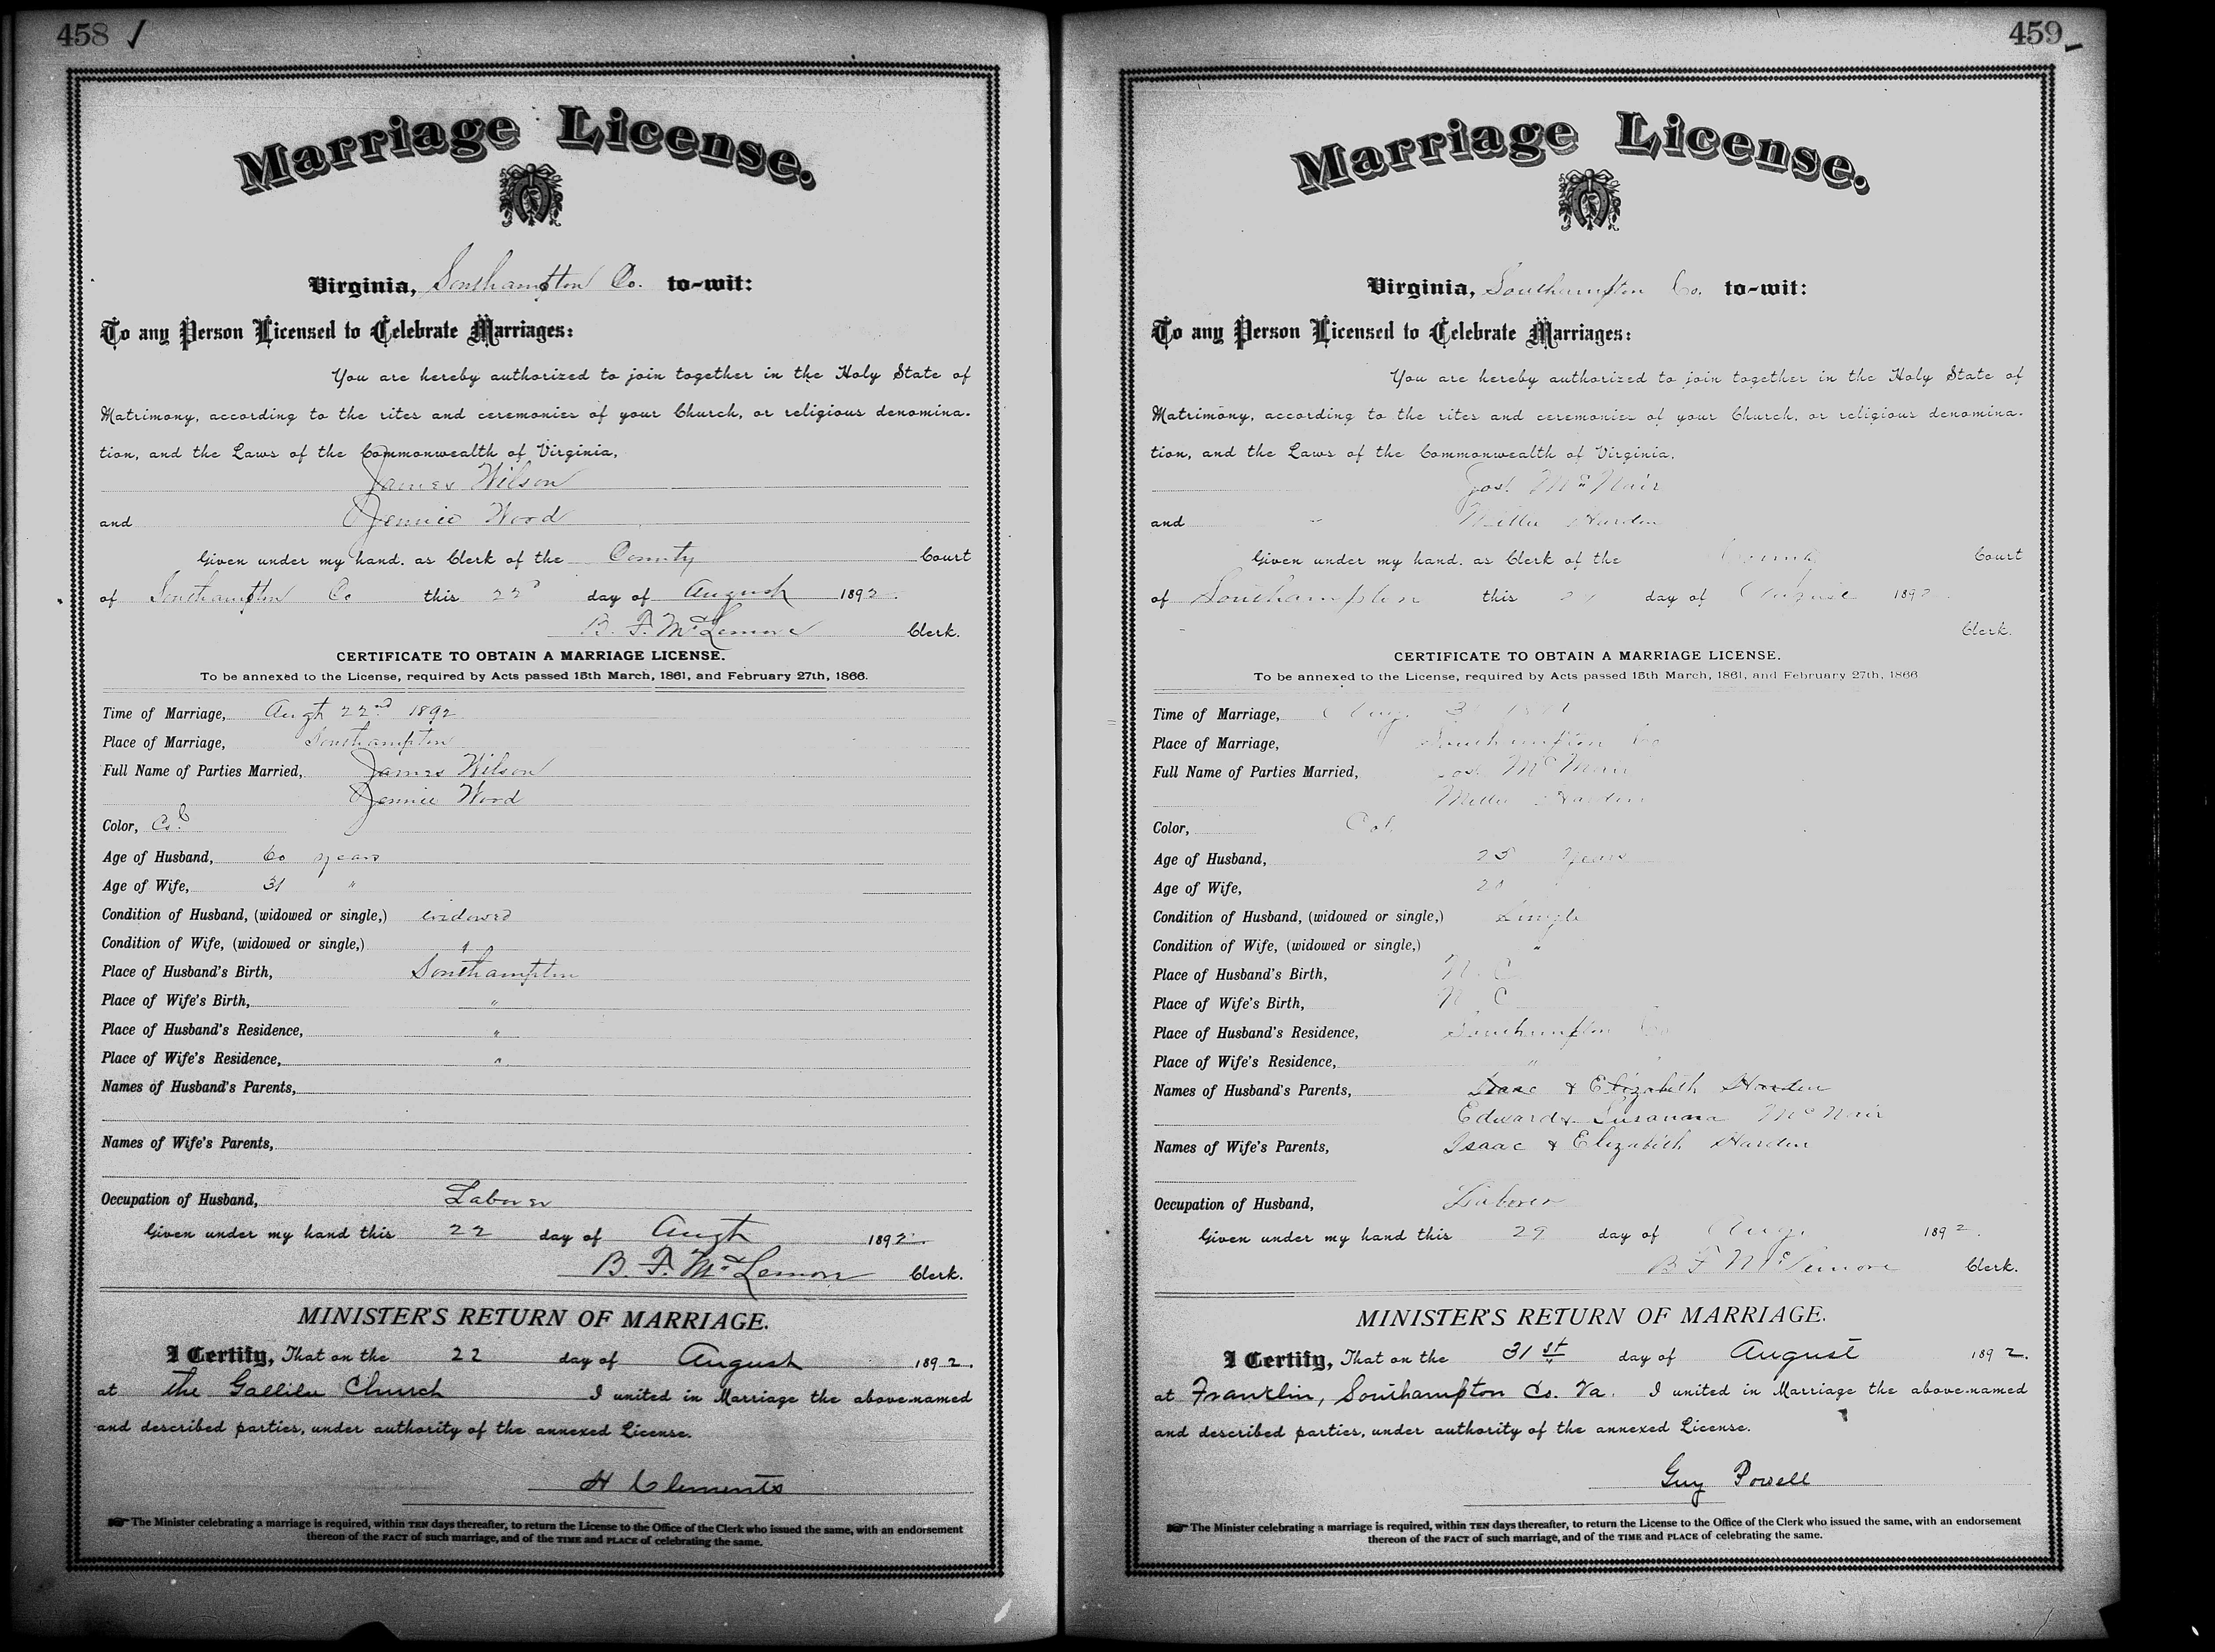 458 ✓
Marriage License.
Virginia, Southampton Co. to-wit:
To any Person Licensed to Celebrate Marriages:
You are hereby authorized to join together in the Holy State of
Matrimony, according to the rites and ceremonies of your Church, or religious denomina-
tion, and the Laws of the Commonwealth of Virginia,
James Wilson
and Jennie Wood
Given under my hand, as Clerk of the County Court
of Southampton Co this 22d day of August 1892.
B. F. McLemore Clerk.
CERTIFICATE TO OBTAIN A MARRIAGE LICENSE.
To be annexed to the License, required by Acts passed 15th March, 1861, and February 27th, 1866.
Time of Marriage, Augt 22nd 1892
Place of Marriage, Southampton
Full Name of Parties Married, James Wilson
Jennie Wood
Color, Cold
Age of Husband, 60 years
Age of Wife, 31 "
Condition of Husband, (widowed or single,) widowed
Condition of Wife, (widowed or single,) "
Place of Husband's Birth, Southampton
Place of Wife's Birth, "
Place of Husband's Residence, "
Place of Wife's Residence, "
Names of Husband's Parents,
Names of Wife's Parents,
Occupation of Husband, Laborer
Given under my hand this 22 day of Augt 1892.
B. F. McLemore Clerk.
MINISTER'S RETURN OF MARRIAGE.
I Certify, That on the 22 day of August 1892.
at the Gallilee Church I united in Marriage the above-named
and described parties, under authority of the annexed License.
H Clements
☞ The Minister celebrating a marriage is required, within TEN days thereafter, to return the License to the Office of the Clerk who issued the same, with an endorsement
thereon of the FACT of such marriage, and of the TIME and PLACE of celebrating the same.
459
Marriage License.
Virginia, Southampton Co. to-wit:
To any Person Licensed to Celebrate Marriages:
You are hereby authorized to join together in the Holy State of
Matrimony, according to the rites and ceremonies of your Church, or religious denomina-
tion, and the Laws of the Commonwealth of Virginia,
Jos. McNair
and Millie Harden
Given under my hand, as Clerk of the County Court
of Southampton this day of August 1892
Clerk.
CERTIFICATE TO OBTAIN A MARRIAGE LICENSE.
To be annexed to the License, required by Acts passed 15th March, 1861, and February 27th, 1866
Time of Marriage, Aug. 31
Place of Marriage, Southampton Co
Full Name of Parties Married, Jos. McNair
Millie Harden
Color, Col.
Age of Husband, 25 years
Age of Wife,
Condition of Husband, (widowed or single,) Single
Condition of Wife, (widowed or single,) "
Place of Husband's Birth, N. C
Place of Wife's Birth, N C
Place of Husband's Residence, Southampton Co
Place of Wife's Residence, "
Names of Husband's Parents, Isaac & Elizabeth Harden
Edward & Susanna McNair
Names of Wife's Parents, Isaac & Elizabeth Harden
Occupation of Husband, Laborer
Given under my hand this 29 day of Aug. 1892.
B F McLemore Clerk.
MINISTER'S RETURN OF MARRIAGE.
I Certify, That on the 31st day of August 1892.
at Franklin, Southampton Co. Va. I united in Marriage the above-named
and described parties, under authority of the annexed License.
Guy Powell
☞ The Minister celebrating a marriage is required, within TEN days thereafter, to return the License to the Office of the Clerk who issued the same, with an endorsement
thereon of the FACT of such marriage, and of the TIME and PLACE of celebrating the same.